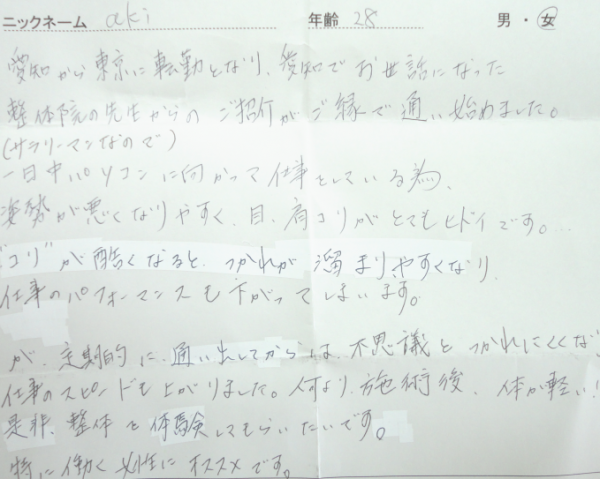 ニックネーム aki 年齢 28 男・女
愛知から東京に転勤となり、愛知でお世話になった
整体院の先生からのご紹介がご縁で通い始めました。
(サラリーマンなので)
一日中パソコンに向かって仕事をしている為、
姿勢が悪くなりやすく、目、肩コリがとてもヒドイです。...
"コリ"が酷くなると、つかれが溜まりやすくなり、
仕事のパフォーマンスも下がってしまいます。
が、定期的に通い出してからは、不思議とつかれにくくな
仕事のスピードも上がりました。何より、施術後、体が軽い!
是非、整体を体験してもらいたいです。
特に働く女性にオススメです。